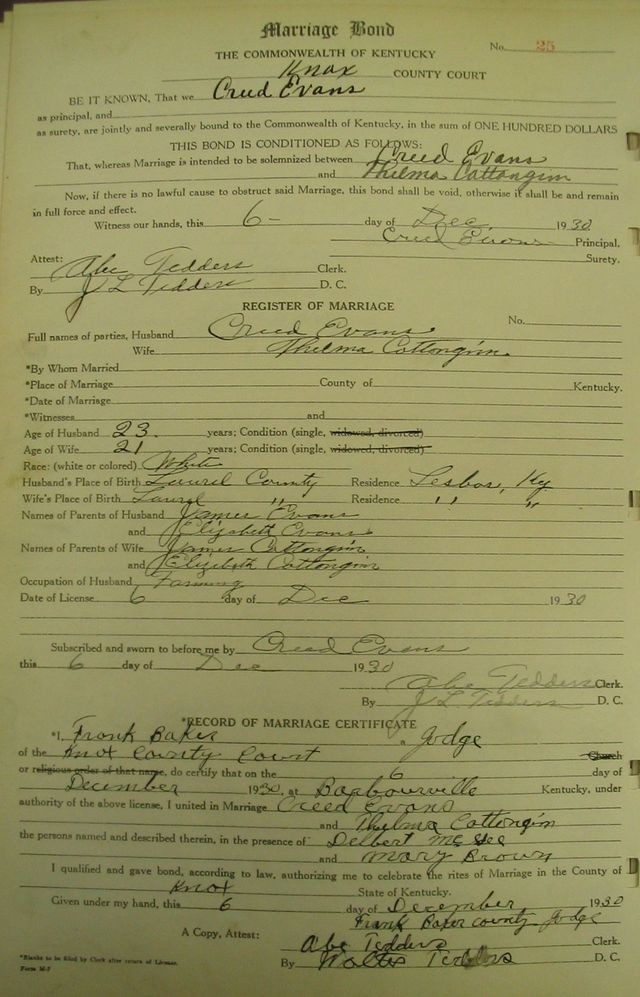 Marriage Bond
THE COMMONWEALTH OF KENTUCKY No. 25
Knox COUNTY COURT
BE IT KNOWN, That we Creed Evans
as principal, and
as surety, are jointly and severally bound to the Commonwealth of Kentucky, in the sum of ONE HUNDRED DOLLARS
THIS BOND IS CONDITIONED AS FOLLOWS:
That, whereas Marriage is intended to be solemnized between Creed Evans
and Thelma Cottongim
Now, if there is no lawful cause to obstruct said Marriage, this bond shall be void, otherwise it shall be and remain
in full force and effect.
Witness our hands, this 6- day of Dec. 1930
Creed Evans Principal.
Surety.
Attest:
Abe Tedders Clerk.
By J L Tedders D. C.
REGISTER OF MARRIAGE
No.
Full names of parties, Husband Creed Evans
Wife Thelma Cottongim.
*By Whom Married
*Place of Marriage County of Kentucky.
*Date of Marriage
*Witnesses and
Age of Husband 23. years; Condition (single, widowed, divorced)
Age of Wife 21 years; Condition (single, widowed, divorced)
Race: (white or colored) White
Husband's Place of Birth Laurel County Residence Lesbas, Ky
Wife's Place of Birth Laurel " Residence " "
Names of Parents of Husband James Evans
and Elizabeth Evans
Names of Parents of Wife James Cottongim
and Elizabeth Cottongim
Occupation of Husband Farming
Date of License 6 day of Dec 1930
Subscribed and sworn to before me by Creed Evans
this 6 day of Dec 1930
Abe Tedders Clerk.
By J L Tedders D. C.
*RECORD OF MARRIAGE CERTIFICATE
*I, Frank Baker a Jodge
of the Knox County Court Church
or religious order of that name, do certify that on the 6 day of
December 1930, at Barbourville Kentucky, under
authority of the above license, I united in Marriage Creed Evans
and Thelma Cottongim
the persons named and described therein, in the presence of Delbert
and Mary Brown
I qualified and gave bond, according to law, authorizing me to celebrate the rites of Marriage in the County of
Knox State of Kentucky.
Given under my hand, this 6 day of December, 1930
Frank Baker county Jodge
A Copy, Attest: Abe Tedders Clerk.
By Walter Tedders D. C.
*Blanks to be filled by Clerk after return of License.
Form M-7